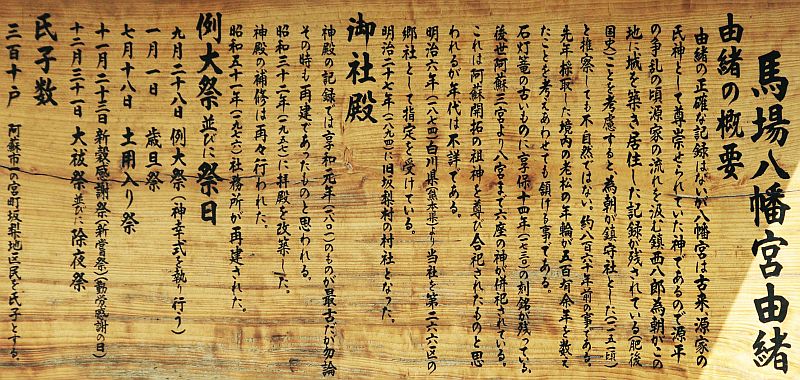 馬場八幡宮由緒
由緒の概要
由緒の正確な記録はないが八幡宮は古来源家の
氏神として尊崇せられていた神であるので源平
の争乱の頃源家の流れを汲む鎮西八郎為朝がこの
地に城を築き居住した記録が残されている(肥後
国史)ことを考慮すると、為朝が鎮守社とした(一一五一頃)
と推察しても不自然ではない。約八百六十年前の事である。
先年採取した境内の老松の年輪が五百有余年を数え
たことを考えあわせても頷ける事である。
石灯篭の古いものに享保十四年(一七三〇)の刻銘が残っている。
後世阿蘇三宮より八宮まで六座の神が併祀されている。
これは阿蘇開拓の祖神を尊び合祀されたものと思
われるが年代は不詳である。
明治六年(一八七四)白川県(熊本県)より当社を第二六六区の
郷社として指定を受けている。
明治二十七年(一八九四)に旧坂梨村の村社となった。
御社殿
神殿の記録では享和元年(一八〇一)のものが最古だが勿論
その時も再建であったものと思われる。
昭和三十二年(一九五七)に拝殿を改築した。
神殿の補修は再々行われた。
昭和五十一年(一九七六)社務所が再建された。
例大祭並びに祭日
九月二十八日 例大祭(神幸式を執り行う)
一月一日 歳旦祭
七月十八日 土用入り祭
十一月二十三日 新穀感謝祭(新嘗祭)(勤労感謝の日)
十二月三十一日 大祓祭並びに除夜祭
氏子数
三百十戸 阿蘇市一の宮町坂梨地区民を氏子とする。